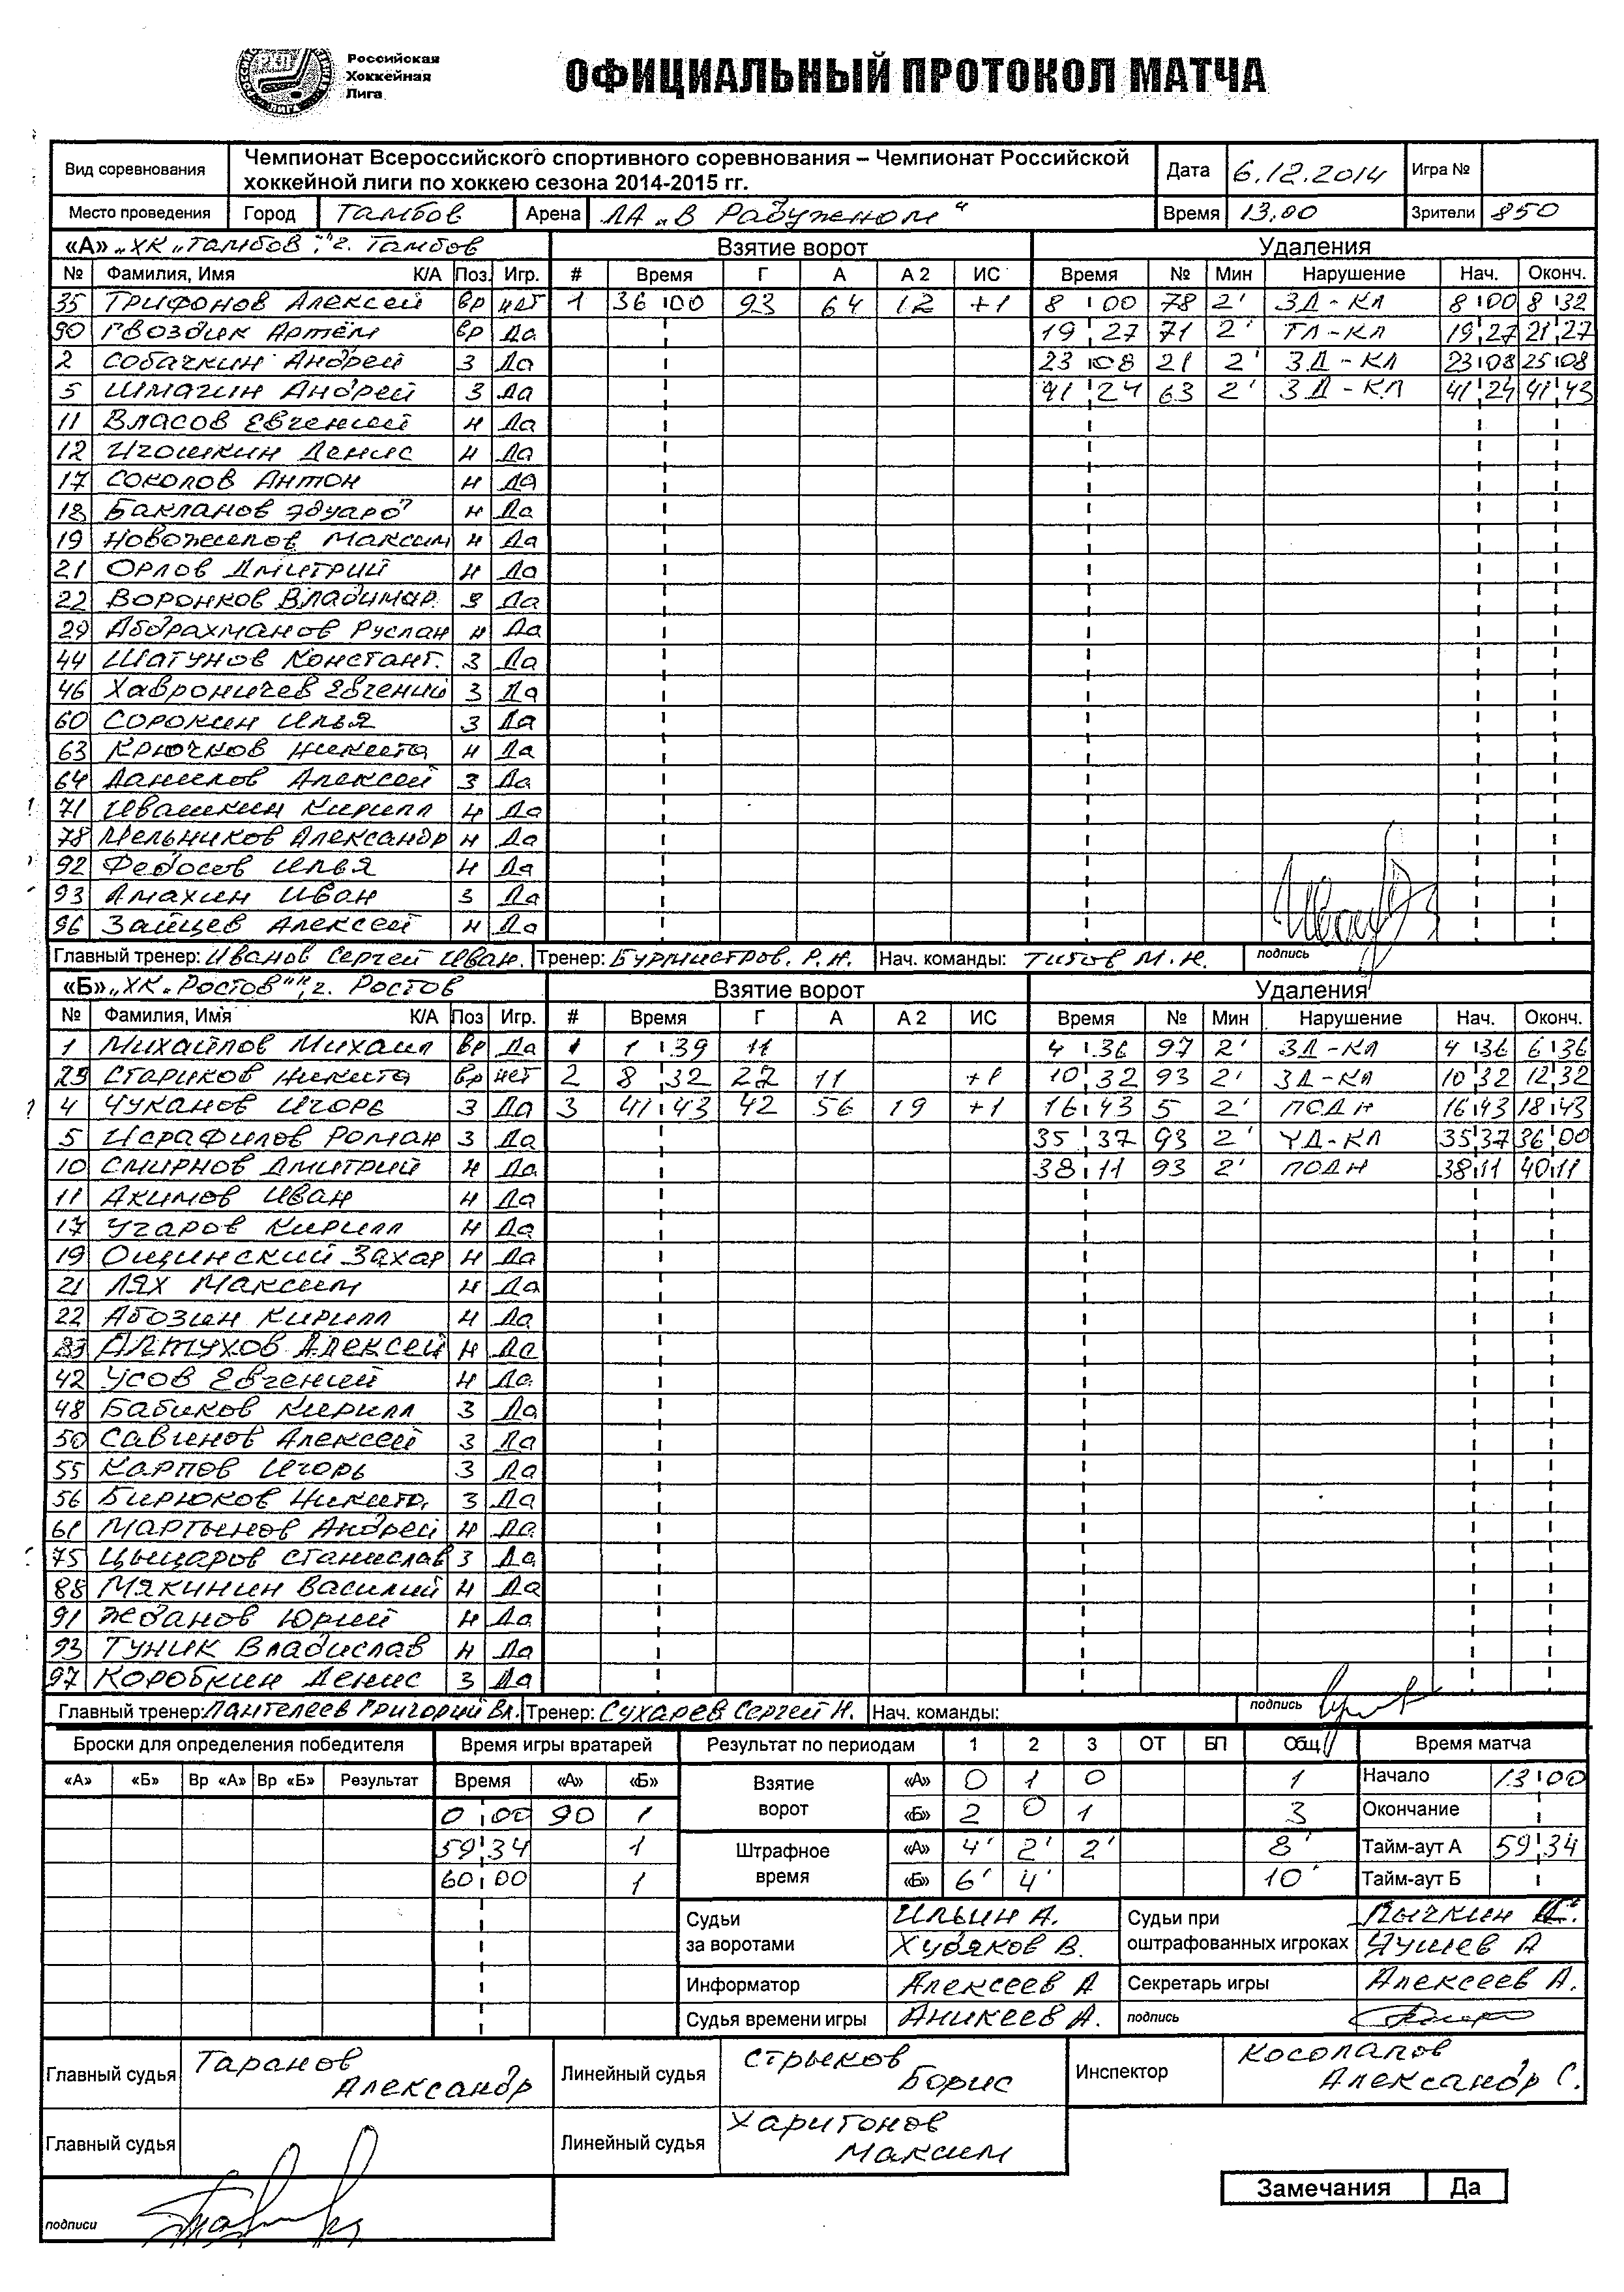 Российская
Хоккейная
Лига
ОФИЦИАЛЬНЫЙ ПРОТОКОЛ МАТЧА
Вид соревнования Чемпионат Всероссийского спортивного соревнования – Чемпионат Российской хоккейной лиги по хоккею сезона 2014-2015 гг. Дата 6.12.2014 Игра №
Место проведения Город Тамбов Арена ЛА „В Радужном“ Время 13.00 Зрители 850
«А» „ХК „Тамбов“, г. Тамбов Взятие ворот Удаления
№ Фамилия, Имя К/А Поз. Игр. # Время Г А А 2 ИС Время № Мин Нарушение Нач. Оконч.
35 Трифонов Алексей вр нет 1 36 00 93 64 12 +1 8 00 78 2' ЗД-КЛ 8 00 8 32
90 Гвоздик Артём вр Да 19 27 71 2' ТЛ-КЛ 19 27 21 27
2 Собачкин Андрей З Да 23 08 21 2' ЗД-КЛ 23 08 25 08
5 Шмагин Андрей З Да 41 24 63 2' ЗД-КЛ 41 24 41 43
11 Власов Евгений Н Да
12 Игошкин Денис Н Да
17 Соколов Антон Н Да
18 Бакланов Эдуард Н Да
19 Новожилов Максим Н Да
21 Орлов Дмитрий Н Да
22 Воронков Владимир З Да
29 Абдрахманов Руслан Н Да
44 Шатунов Констант. З Да
46 Хавроничев Евгений З Да
60 Сорокин Илья З Да
63 Крючков Никита Н Да
64 Данилов Алексей З Да
71 Ивашкин Кирилл Н Да
78 Мельников Александр Н Да
92 Федосов Илья Н Да
93 Амахин Иван З Да
96 Зайцев Алексей Н Да
Главный тренер: Иванов Сергей Иван. Тренер: Бурмистров. Р.Н. Нач. команды: Титов М.Н. подпись
«Б» „ХК „Ростов“, г. Ростов Взятие ворот Удаления
№ Фамилия, Имя К/А Поз Игр. # Время Г А А 2 ИС Время № Мин Нарушение Нач. Оконч.
1 Михайлов Михаил вр Да 1 1 39 11 4 36 97 2' ЗД-КЛ 4 36 6 36
25 Стариков Никита вр нет 2 8 32 22 11 +1 10 32 93 2' ЗД-КЛ 10 32 12 32
4 Чуканов Игорь З Да 3 41 43 42 56 19 +1 16 43 5 2' ПОДН 16 43 18 43
5 Исрафилов Роман З Да 35 37 93 2' УД-КЛ 35 37 36 00
10 Смирнов Дмитрий Н Да 38 11 93 2' ПОДН 38 11 40 11
11 Акимов Иван Н Да
17 Угаров Кирилл Н Да
19 Ощинский Захар Н Да
21 Лях Максим Н Да
22 Абозин Кирилл Н Да
33 Алтухов Алексей Н Да
42 Усов Евгений Н Да
48 Бабиков Кирилл З Да
50 Савинов Алексей З Да
55 Карпов Игорь З Да
56 Бирюков Никита З Да
61 Мартынов Андрей Н Да
75 Цыцаров Станислав З Да
88 Мякинин Василий Н Да
91 Жданов Юрий Н Да
93 Туник Владислав Н Да
97 Коробкин Денис З Да
Главный тренер: Пантелеев Григорий Вл. Тренер: Сухарев Сергей Н. Нач. команды: подпись
Броски для определения победителя Время игры вратарей Результат по периодам 1 2 3 ОТ БП Общ Время матча
«А» «Б» Вр «А» Вр «Б» Результат Время «А» «Б» Взятие ворот «А» 0 1 0 1 Начало 13 00
0 00 90 1 «Б» 2 0 1 3 Окончание
59 34 1 Штрафное время «А» 4' 2' 2' 8' Тайм-аут А 59 34
60 00 1 «Б» 6' 4' 10' Тайм-аут Б
Судьи за воротами Ильин А. Худяков В. Судьи при оштрафованных игроках Лычкин Яушев А
Информатор Алексеев А Секретарь игры Алексеев А.
Судья времени игры Аникеев А. подпись
Главный судья Таранов Александр Линейный судья Стрыков Борис Инспектор Косолапов Александр С.
Главный судья Линейный судья Харитонов Максим
Замечания Да
подписи